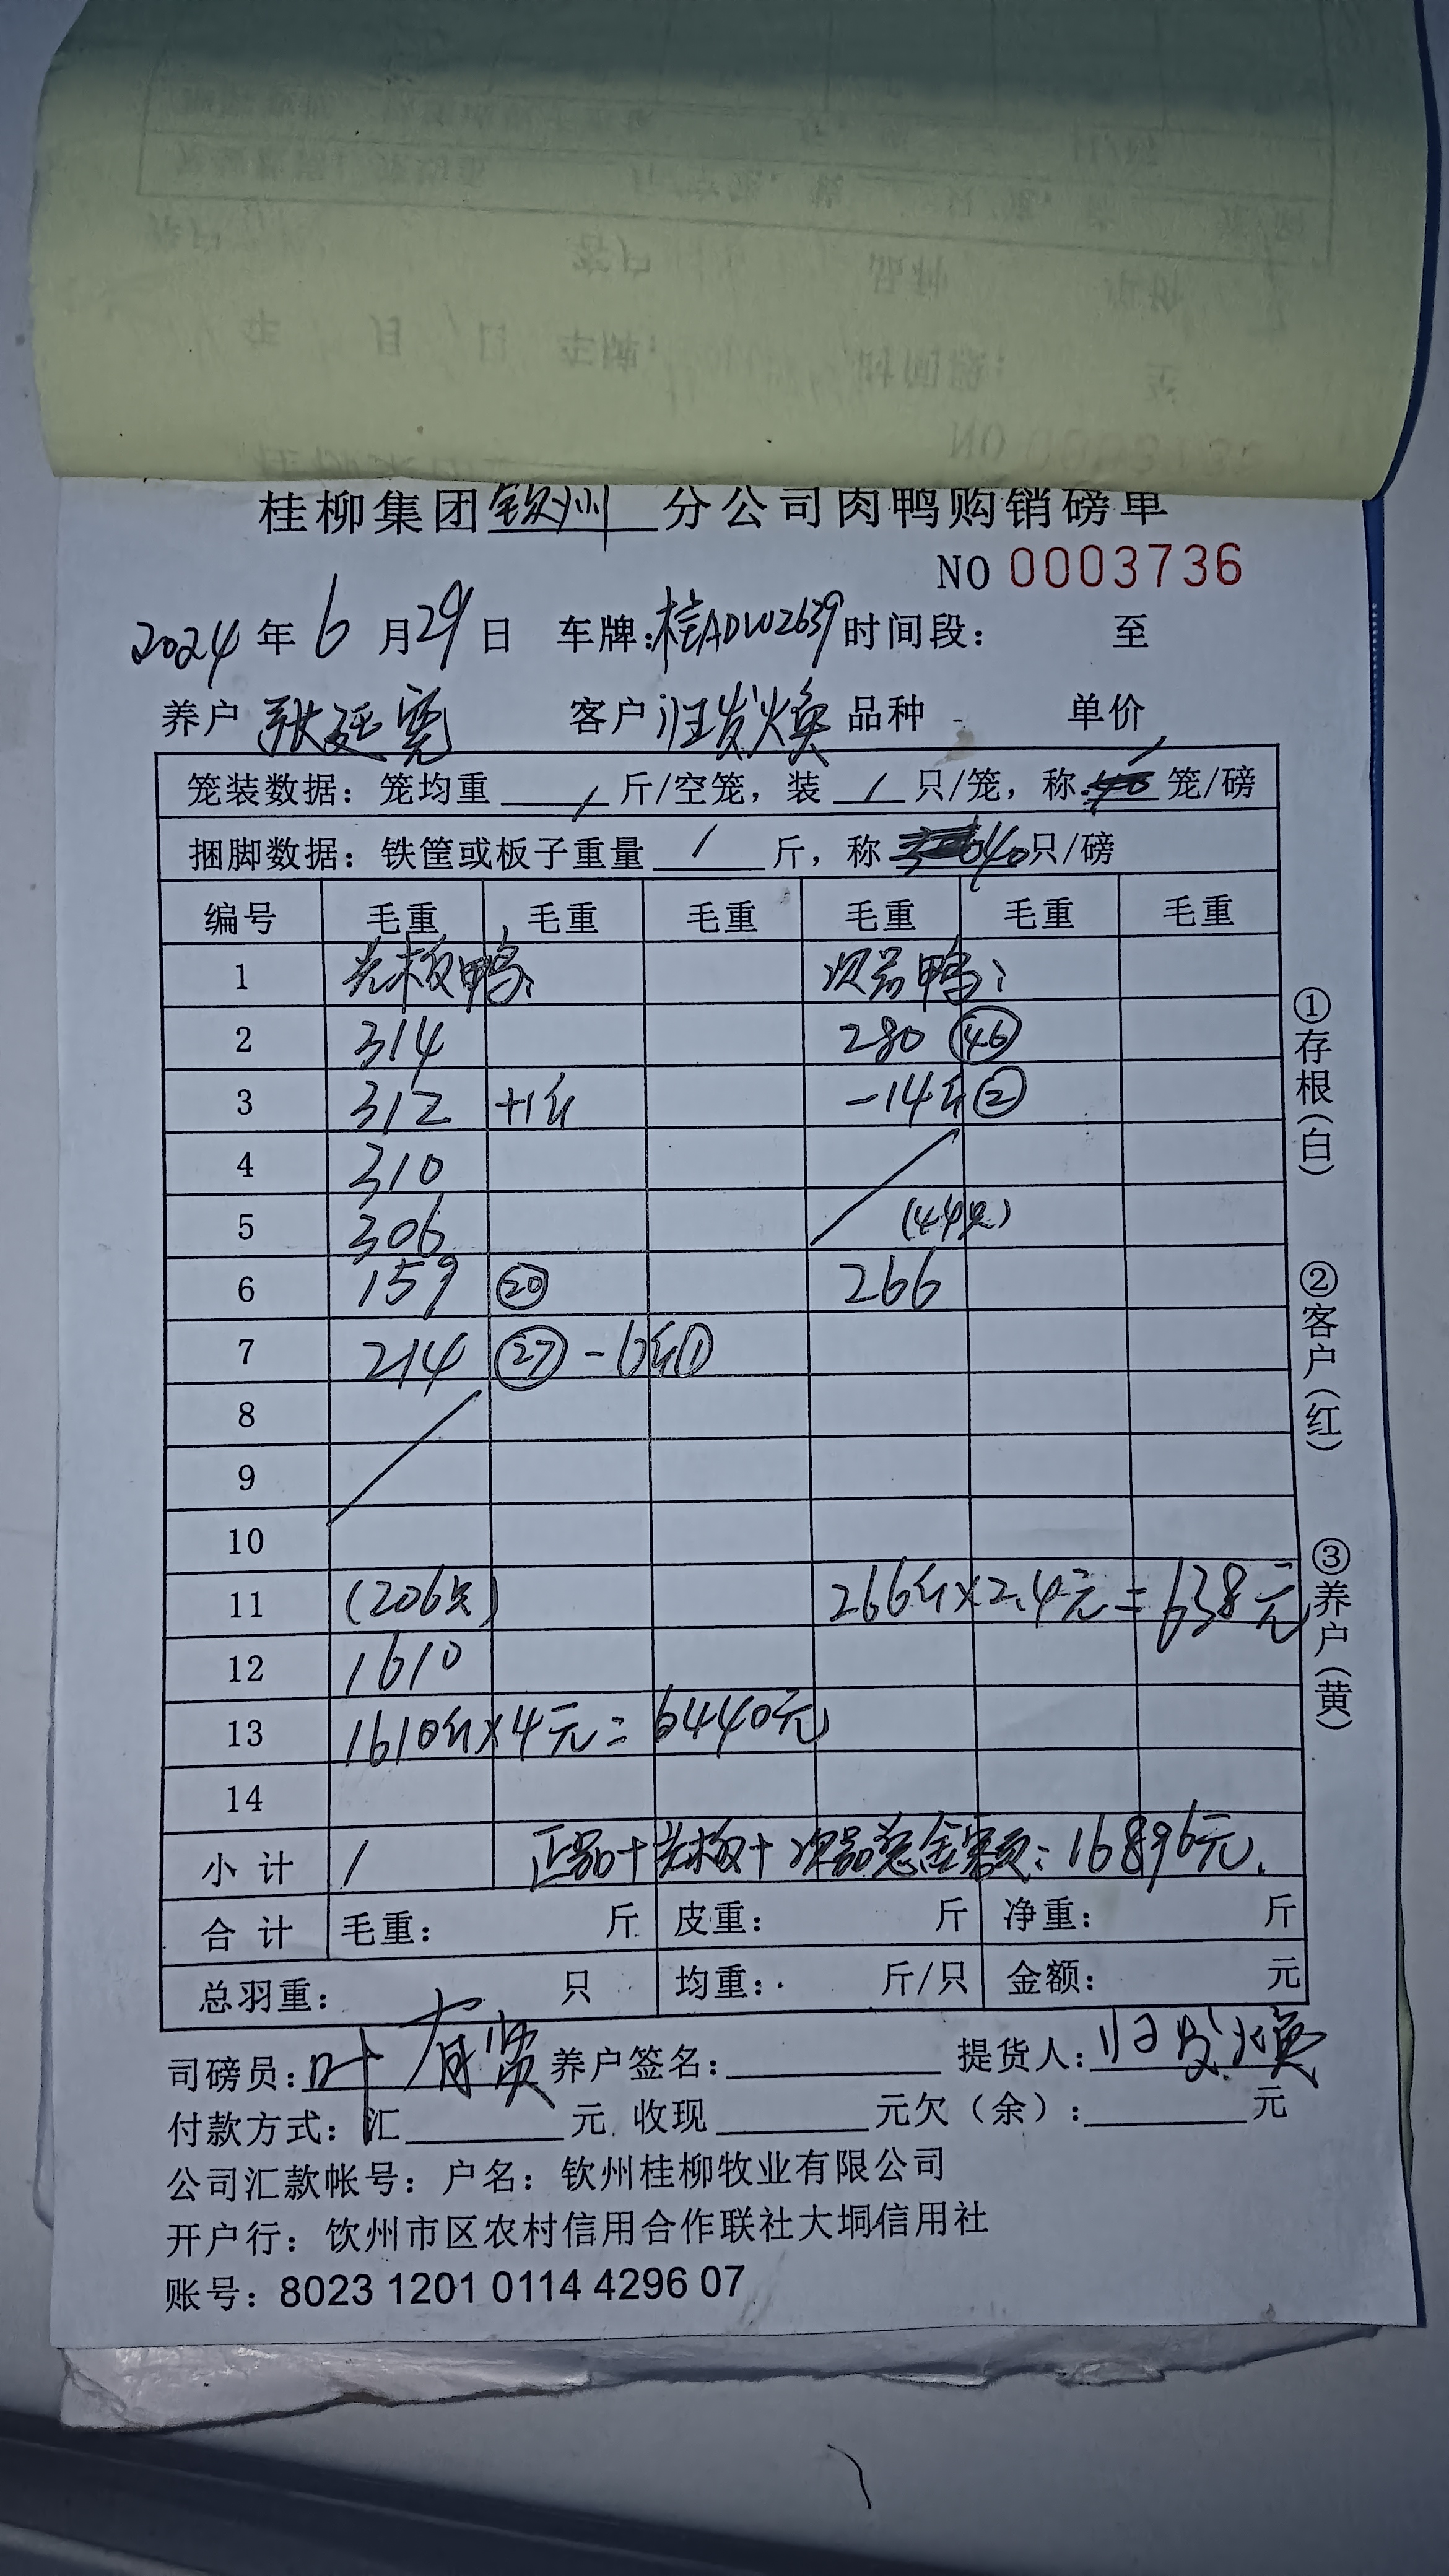 桂柳集团钦州分公司肉鸭购销磅单
NO 0003736
2024年6月29日 车牌:桂ADW2639 时间段: 至
养户 张廷宽 客户 汪发焕 品种 单价
笼装数据:笼均重 / 斤/空笼,装 / 只/笼,称 笼/磅
捆脚数据:铁筐或板子重量 / 斤,称 40只/磅
编号 毛重 毛重 毛重 毛重 毛重 毛重
1 光板鸭: 次品鸭:
2 314 280 46
3 312 +1斤 -14斤 2
4 310
5 306 (44只)
6 159 20 266
7 214 27 -6斤 1
8
9
10
11 (206只) 266斤×2.4元=638元
12 1610
13 1610斤×4元=6440元
14
小计 / 正品+光板+次品总金额:16896元.
合计 毛重: 斤 皮重: 斤 净重: 斤
总羽重: 只 均重: 斤/只 金额: 元
司磅员:叶有贤 养户签名: 提货人:汪发焕
付款方式:汇 元 收现 元欠(余): 元
公司汇款帐号:户名:钦州桂柳牧业有限公司
开户行:钦州市区农村信用合作联社大垌信用社
账号:8023 1201 0114 4296 07
①存根(白)
②客户(红)
③养户(黄)